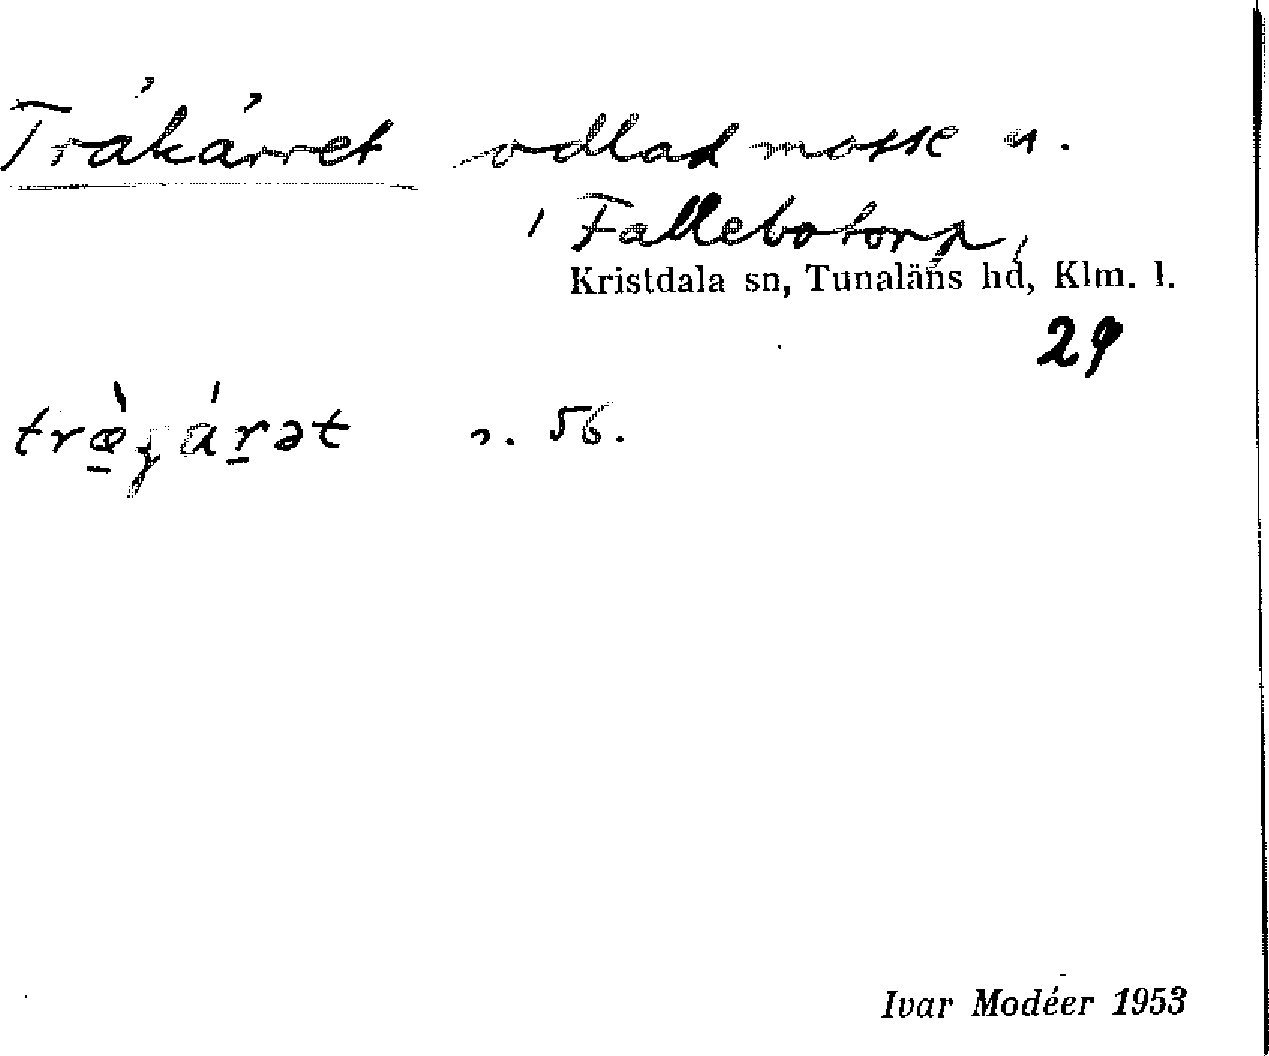 Träkärret odlad mosse n.
i Fallebotorp,
Kristdala sn, Tunaläns hd, Klm. l.
29
s. 56.
Ivar Modéer 1953